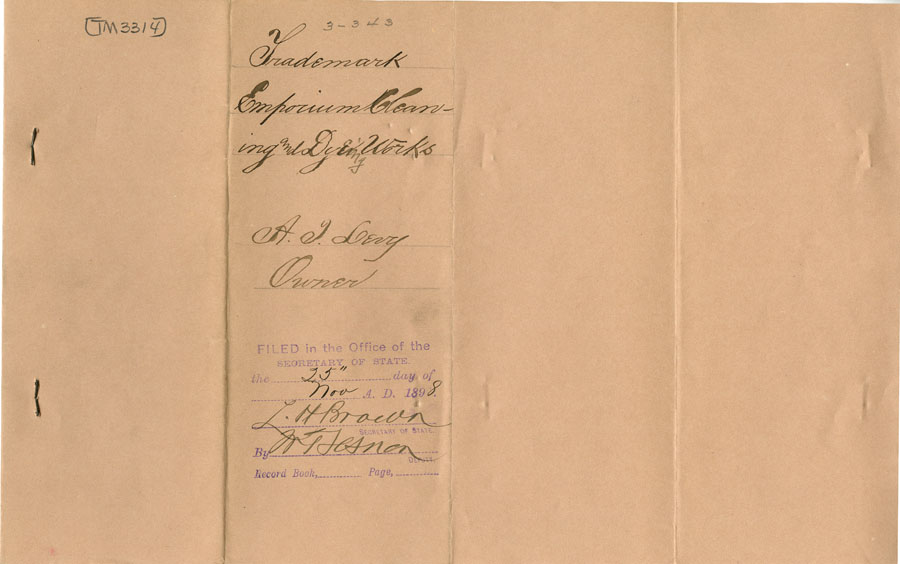 TM3314
3-343
Trademark
Emporium Clean-
ing and Dyeing Works
A. I. Levy
Owner
FILED in the Office of the
SECRETARY OF STATE.
the 25" day of
Nov A. D. 1898.
L. H Brown
SECRETARY OF STATE.
By
DEPUTY.
Record Book, Page,